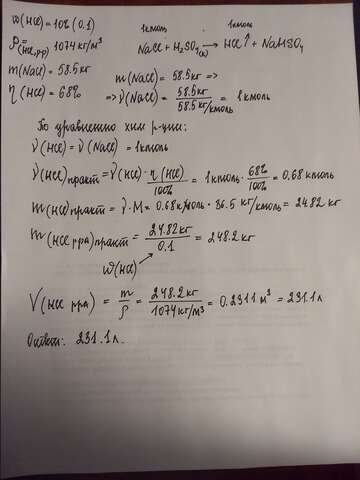 ω(HCl) = 10% (0.1)
ρ(HCl, р-р) = 1074 кг/м³
m(NaCl) = 58.5 кг
η(HCl) = 68%
1 кмоль 1 кмоль
NaCl + H₂SO₄(к) → HCl↑ + NaHSO₄
m(NaCl) = 58.5 кг =>
=> ν(NaCl) = 58.5 кг / 58.5 кг/кмоль = 1 кмоль
По уравнению хим р-ции:
ν(HCl) = ν(NaCl) = 1 кмоль
ν(HCl)практ = ν(HCl) · η(HCl) / 100% = 1 кмоль · 68% / 100% = 0.68 кмоль
m(HCl)практ = ν · M = 0.68 кмоль · 36.5 кг/кмоль = 24.82 кг
m(HCl рра)практ = 24.82 кг / 0.1 = 248.2 кг
ω(HCl)
V(HCl рра) = m / ρ = 248.2 кг / 1074 кг/м³ = 0.2311 м³ = 231.1 л
Ответ: 231.1 л.